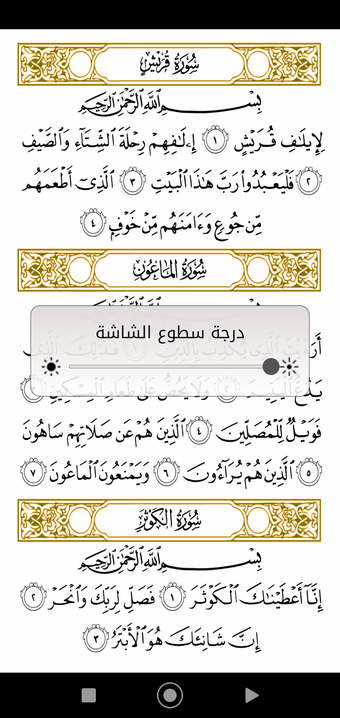 سُورَةُ قُرَيْشٍ
بِسْمِ ٱللَّهِ ٱلرَّحْمَٰنِ ٱلرَّحِيمِ
لِإِيلَٰفِ قُرَيْشٍ ١ إِۦلَٰفِهِمْ رِحْلَةَ ٱلشِّتَآءِ وَٱلصَّيْفِ
٢ فَلْيَعْبُدُوا۟ رَبَّ هَٰذَا ٱلْبَيْتِ ٣ ٱلَّذِىٓ أَطْعَمَهُم
مِّن جُوعٍ وَءَامَنَهُم مِّنْ خَوْفٍ ٤
سُورَةُ المَاعُونِ
درجة سطوع الشاشة
فَوَيْلٌ لِّلْمُصَلِّينَ ٤ ٱلَّذِينَ هُمْ عَن صَلَاتِهِمْ سَاهُونَ
٥ ٱلَّذِينَ هُمْ يُرَآءُونَ ٦ وَيَمْنَعُونَ ٱلْمَاعُونَ ٧
سُورَةُ الكَوْثَرِ
بِسْمِ ٱللَّهِ ٱلرَّحْمَٰنِ ٱلرَّحِيمِ
إِنَّآ أَعْطَيْنَٰكَ ٱلْكَوْثَرَ ١ فَصَلِّ لِرَبِّكَ وَٱنْحَرْ ٢
إِنَّ شَانِئَكَ هُوَ ٱلْأَبْتَرُ ٣